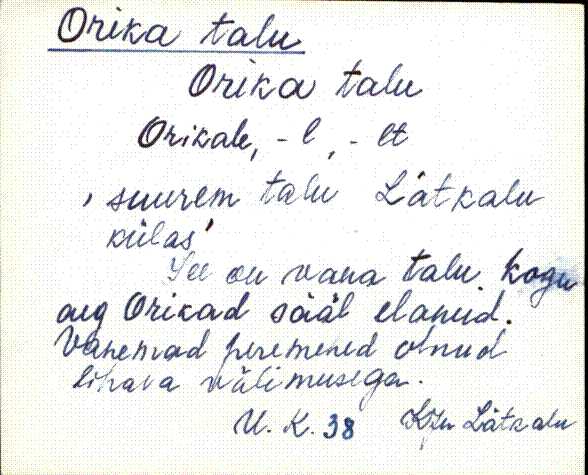 Orika talu
Orika talu
Orikale, -l, -lt
, suurem talu Lätkalu
külas'
See on vana talu. kogu
aeg Orikad sääl elanud.
Vanemad peremehed olnud
lihava välimusega.
U. K. 38 Kjn Lätkalu